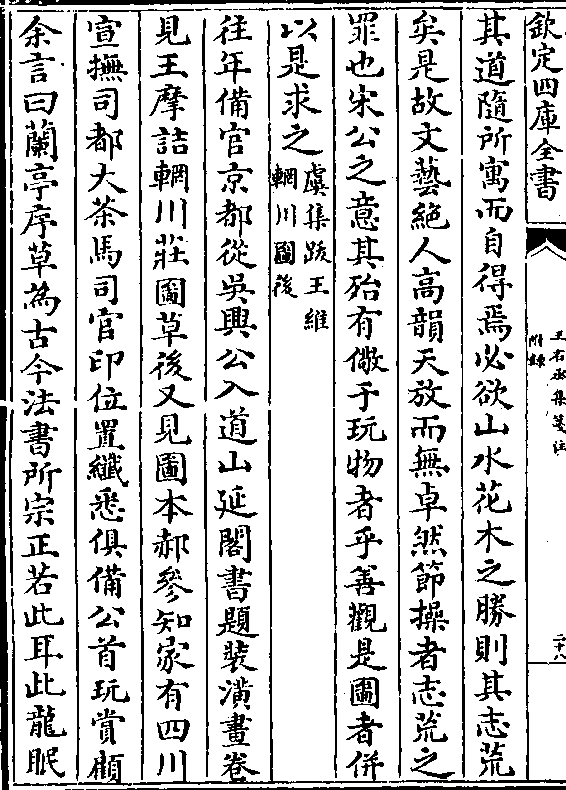 欽定四庫全書
王右丞集箋注
附錄
二十八
其道隨所寓而自得焉必欲山水花木之勝則其志荒
矣是故文藝絕人高韻天放而無卓然節操者志荒之
罪也宋公之意其殆有儆于玩物者乎善觀是圖者併
以是求之
虞集跋王維
輞川圖後
往年備官京都從吳興公入道山延閣書題裝潢畫卷
見王摩詰輞川莊圖草後又見圖本郝參知家有四川
宣撫司都大茶馬司官印位置纖悉俱備公首玩賞顧
余言曰蘭亭序草為古今法書所宗正若此耳此龍眠